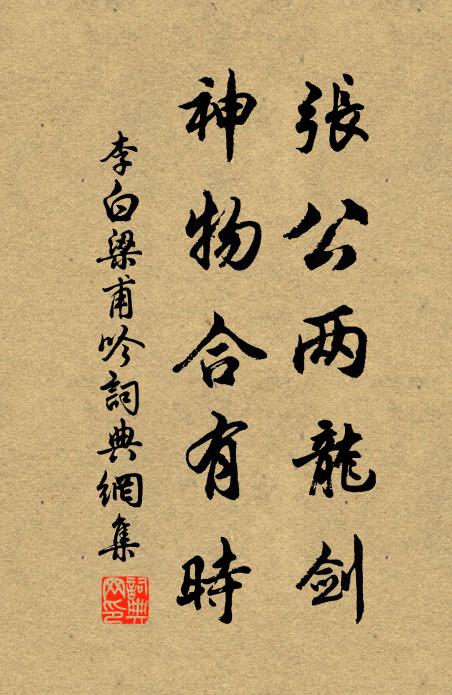 張公两龍劍
神物合有時
李白梁甫吟詞典網集
詞典网印